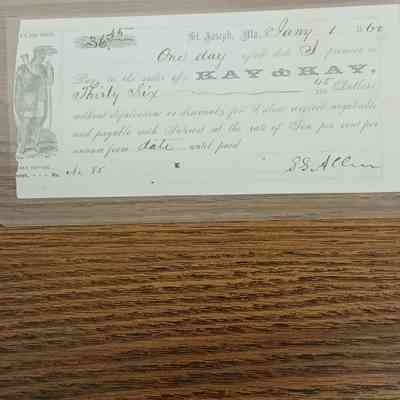 36 45 St. Joseph, Mo. Jany 1 1860
One day after date I promise to
Pay to the order of KAY & KAY,
Thirty Six 45/100 Dollars
without defalcation or discount, for value received, negotiable
and payable with Interest at the rate of Ten per cent per
annum from date until paid
No 85 S S Allen